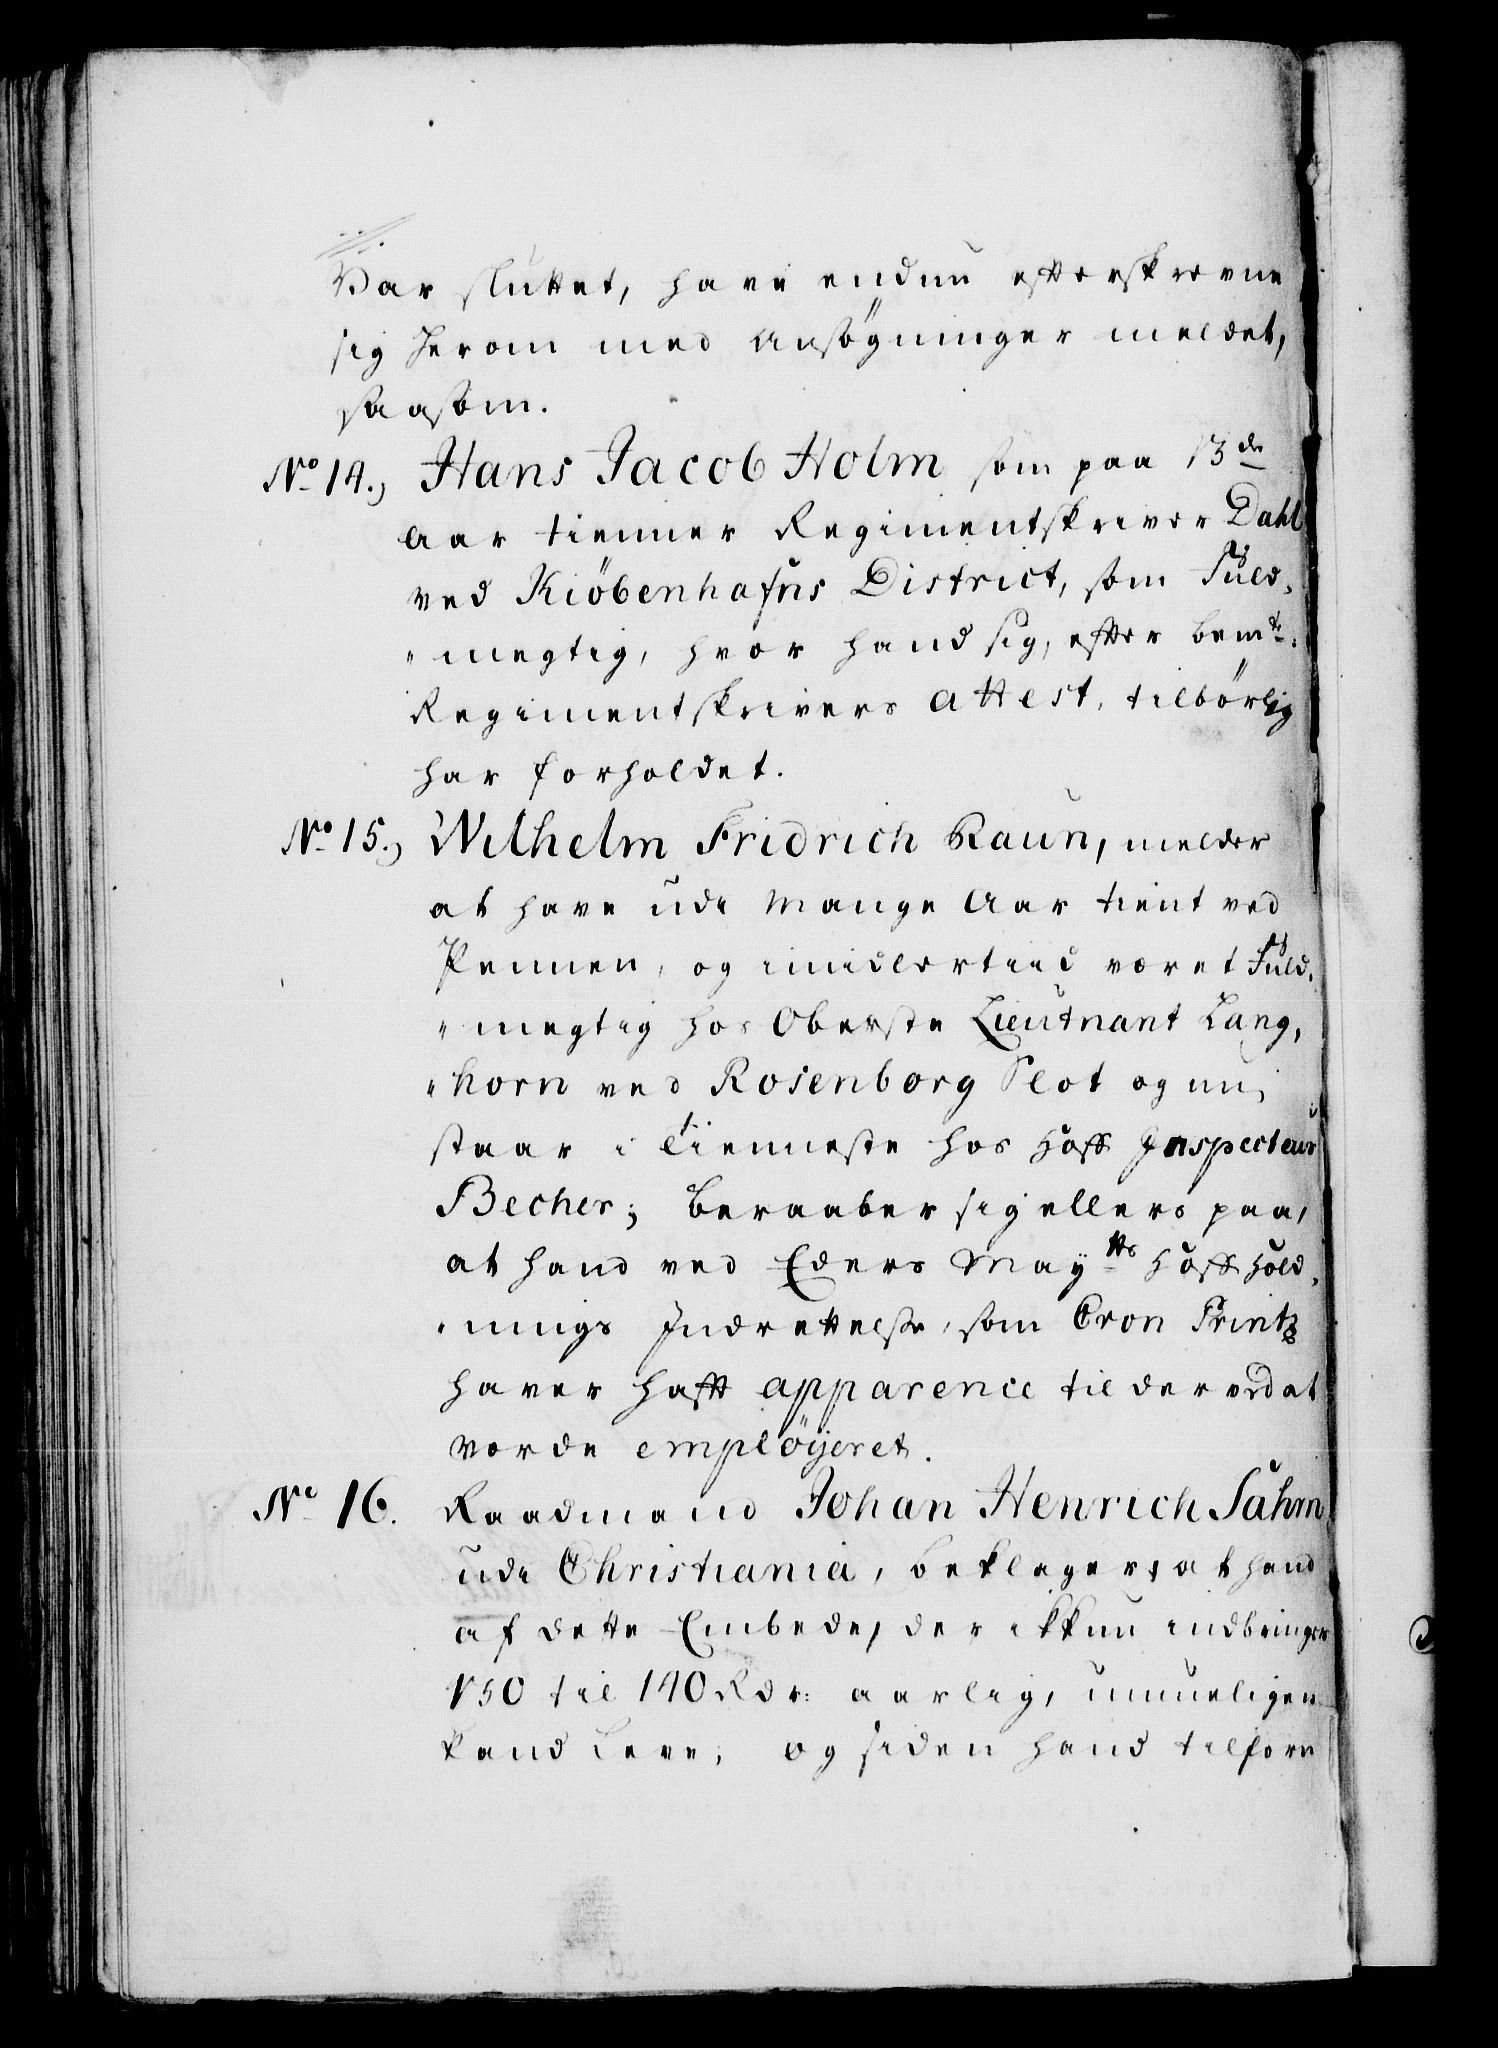 Var sluttet, have endnu efterskrevne
sig herom med Ansögninger meldet,
saasom.
No 14., Hans Jacob Holm som paa 13de
Aar tienner Regimentskriver Dahl
ved Kiöbenhafns District, som Fuld,
"megtig, hvor hand sig, efter bemte:
Regimentskrivers attest, tilbörlig
har forholdet.
No 15., Wilhelm Fridrich Raun, melder
at have udi mange Aar tient ved
Pennen, og imidlertiid været Fuld,
"megtig hos Oberste Lieutnant Lang,
"horn ved Rosenborg Slot og nu
staar i Tienneste hos Hoff Inspecteur
Becher; beraaber sig ellers paa,
at hand ved Eders Mayts Hoff Hold,
"nings Indrettelse, som Cron Printz
haver hafft apparence til derved at
vorde emplöijeret.
No 16. Raadmand Johan Henrich Sahm
udi Christiania, beklager, at hand
af dette Embede, der ikkun indbringer
130 til 140 Rdr: aarlig, umueligen
kand leve; og siden hand tilforn